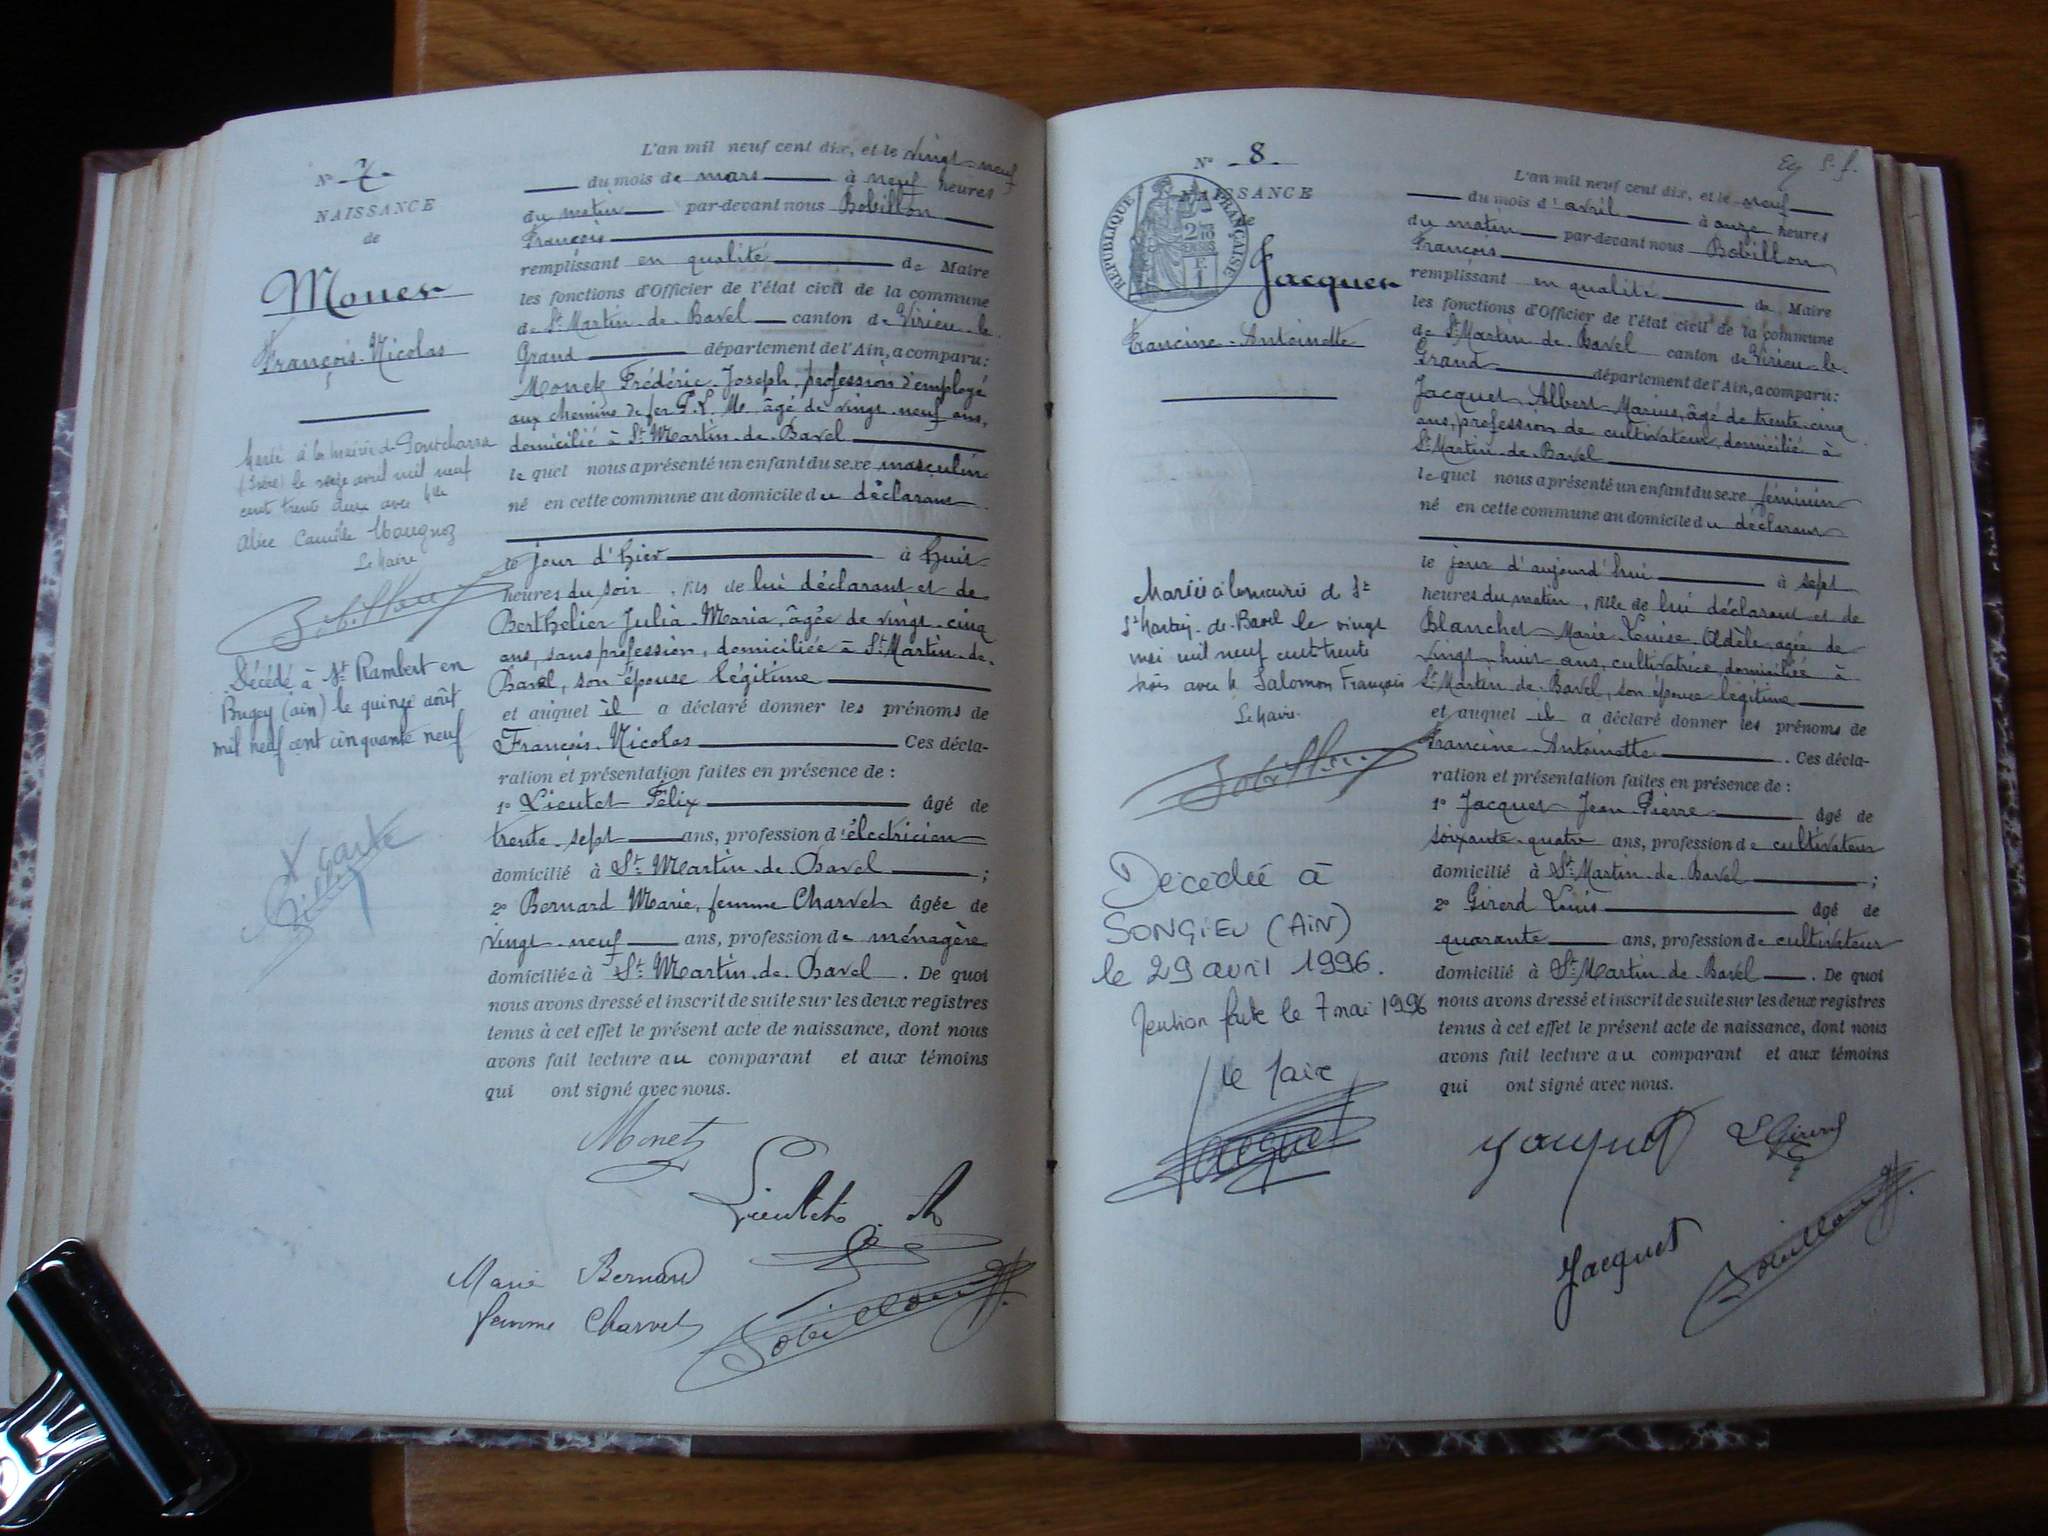 N° 7
NAISSANCE
de
Monet
François-Nicolas
Marié à la mairie de Pontcharra
(Isère) le seize avril mil neuf
cent trente deux avec
Alice Camille
Le Maire
Bobillon
Décédé à St Rambert en
Bugey (ain) le quinze août
mil neuf cent cinquante neuf
L'an mil neuf cent dix, et le vingt-neuf
du mois de mars à neuf heures
du matin par-devant nous Bobillon
François
remplissant en qualité de Maire
les fonctions d'Officier de l'état civil de la commune
de St Martin-de-Bavel canton de Virieu-le-
Grand département de l'Ain, a comparu:
Monet Frédéric-Joseph, profession d'employé
aux chemins de fer P. L. M. âgé de vingt-neuf ans,
domicilié à St Martin-de-Bavel
le quel nous a présenté un enfant du sexe masculin
né en cette commune au domicile du déclarant
le jour d'hier à huit
heures du soir, fils de lui déclarant et de
Berthelier Julia-Maria, âgée de vingt-cinq
ans, sans profession, domiciliée à St Martin-de-
Bavel, son épouse légitime
et auquel il a déclaré donner les prénoms de
François-Nicolas Ces décla-
ration et présentation faites en présence de :
1° Lieutet Félix âgé de
trente-sept ans, profession d'électricien
domicilié à St Martin-de-Bavel ;
2° Bernard Marie, femme Charvet âgée de
vingt-neuf ans, profession de ménagère
domiciliée à St Martin-de-Bavel. De quoi
nous avons dressé et inscrit de suite sur les deux registres
tenus à cet effet le présent acte de naissance, dont nous
avons fait lecture au comparant et aux témoins
qui ont signé avec nous.
Monet
Lieutet
Marie Bernard
femme Charvet
Bobillon
N° 8
NAISSANCE
de
RÉPUBLIQUE FRANÇAISE
Jacquet
Francine-Antoinette
Mariée à la mairie de St
St Martin-de-Bavel le vingt
mai mil neuf cent trente
trois avec Salomon François
Le Maire
Bobillon
Décédée à
SONGIEU (AiN)
le 29 avril 1996.
Mention faite le 7 mai 1996
le Maire
Jacquet
L'an mil neuf cent dix, et le neuf
du mois d'avril à onze heures
du matin par-devant nous Bobillon
François
remplissant en qualité de Maire
les fonctions d'Officier de l'état civil de la commune
de St Martin-de-Bavel canton de Virieu-le-
Grand département de l'Ain, a comparu:
Jacquet Albert-Marius, âgé de trente-cinq
ans, profession de cultivateur, domicilié à
St Martin-de-Bavel
le quel nous a présenté un enfant du sexe féminin
né en cette commune au domicile du déclarant
le jour d'aujourd'hui à sept
heures du matin, fille de lui déclarant et de
Blanchet Marie-Louise-Adèle, agée de
vingt-huit ans, cultivatrice, domiciliée à
St Martin-de-Bavel, son épouse légitime
et auquel il a déclaré donner les prénoms de
Francine-Antoinette. Ces décla-
ration et présentation faites en présence de :
1° Jacquet Jean-Pierre âgé de
soixante-quatre ans, profession de cultivateur
domicilié à St Martin-de-Bavel ;
2° Girerd Louis âgé de
quarante ans, profession de cultivateur
domicilié à St Martin-de-Bavel. De quoi
nous avons dressé et inscrit de suite sur les deux registres
tenus à cet effet le présent acte de naissance, dont nous
avons fait lecture au comparant et aux témoins
qui ont signé avec nous.
Jacquet L Girerd
Jacquet Bobillon